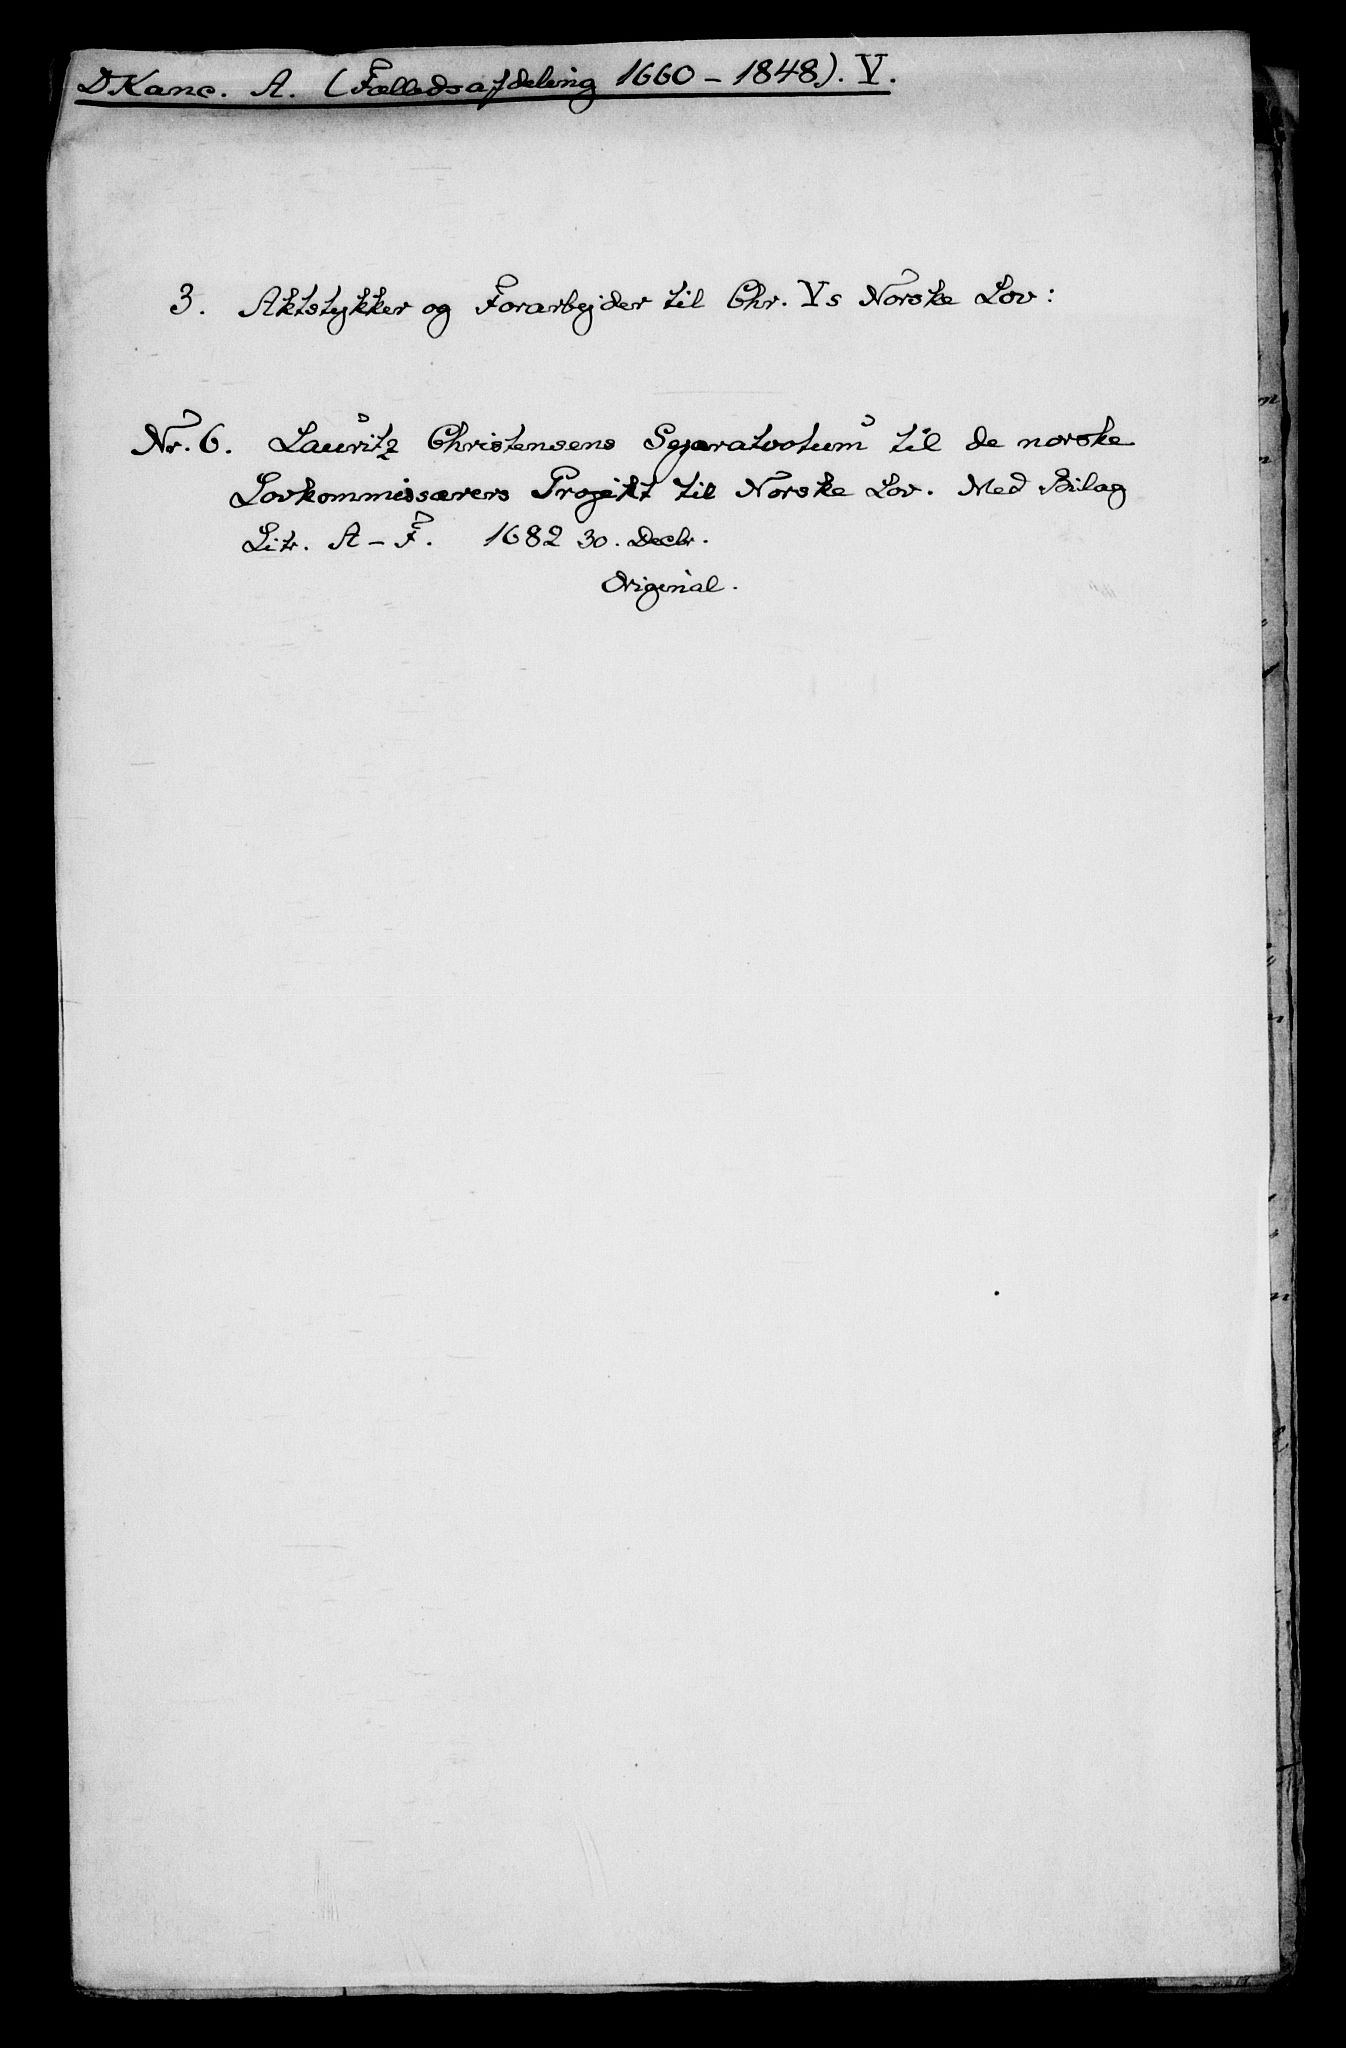 DKanc. A. (Fælledsafdeling 1660 - 1848). V.
3. Aktstykker og Forarbejder til Chr. Vs Norske Lov:
Nr. 6. Lauritz Christensens Separatvotum til de norske
Lovkommissærers Projekt til Norske Lov. Med Bilag
Litr. A - F. 1682 30. Decbr.
Original.